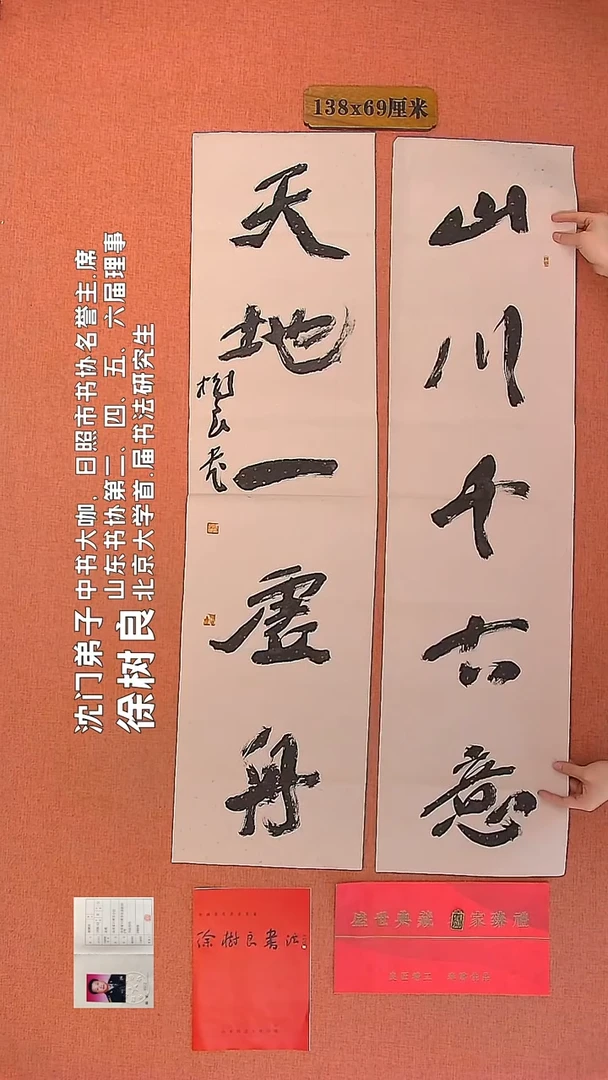 138x69厘米
山川千古意
天地一虚舟
树良书
沈门弟子 中书大咖，日照市书协名誉主席
山东书协第二、四、五、六届理事
徐树良 北京大学首届书法研究生
徐树良书法
盛世典藏 家臻禧